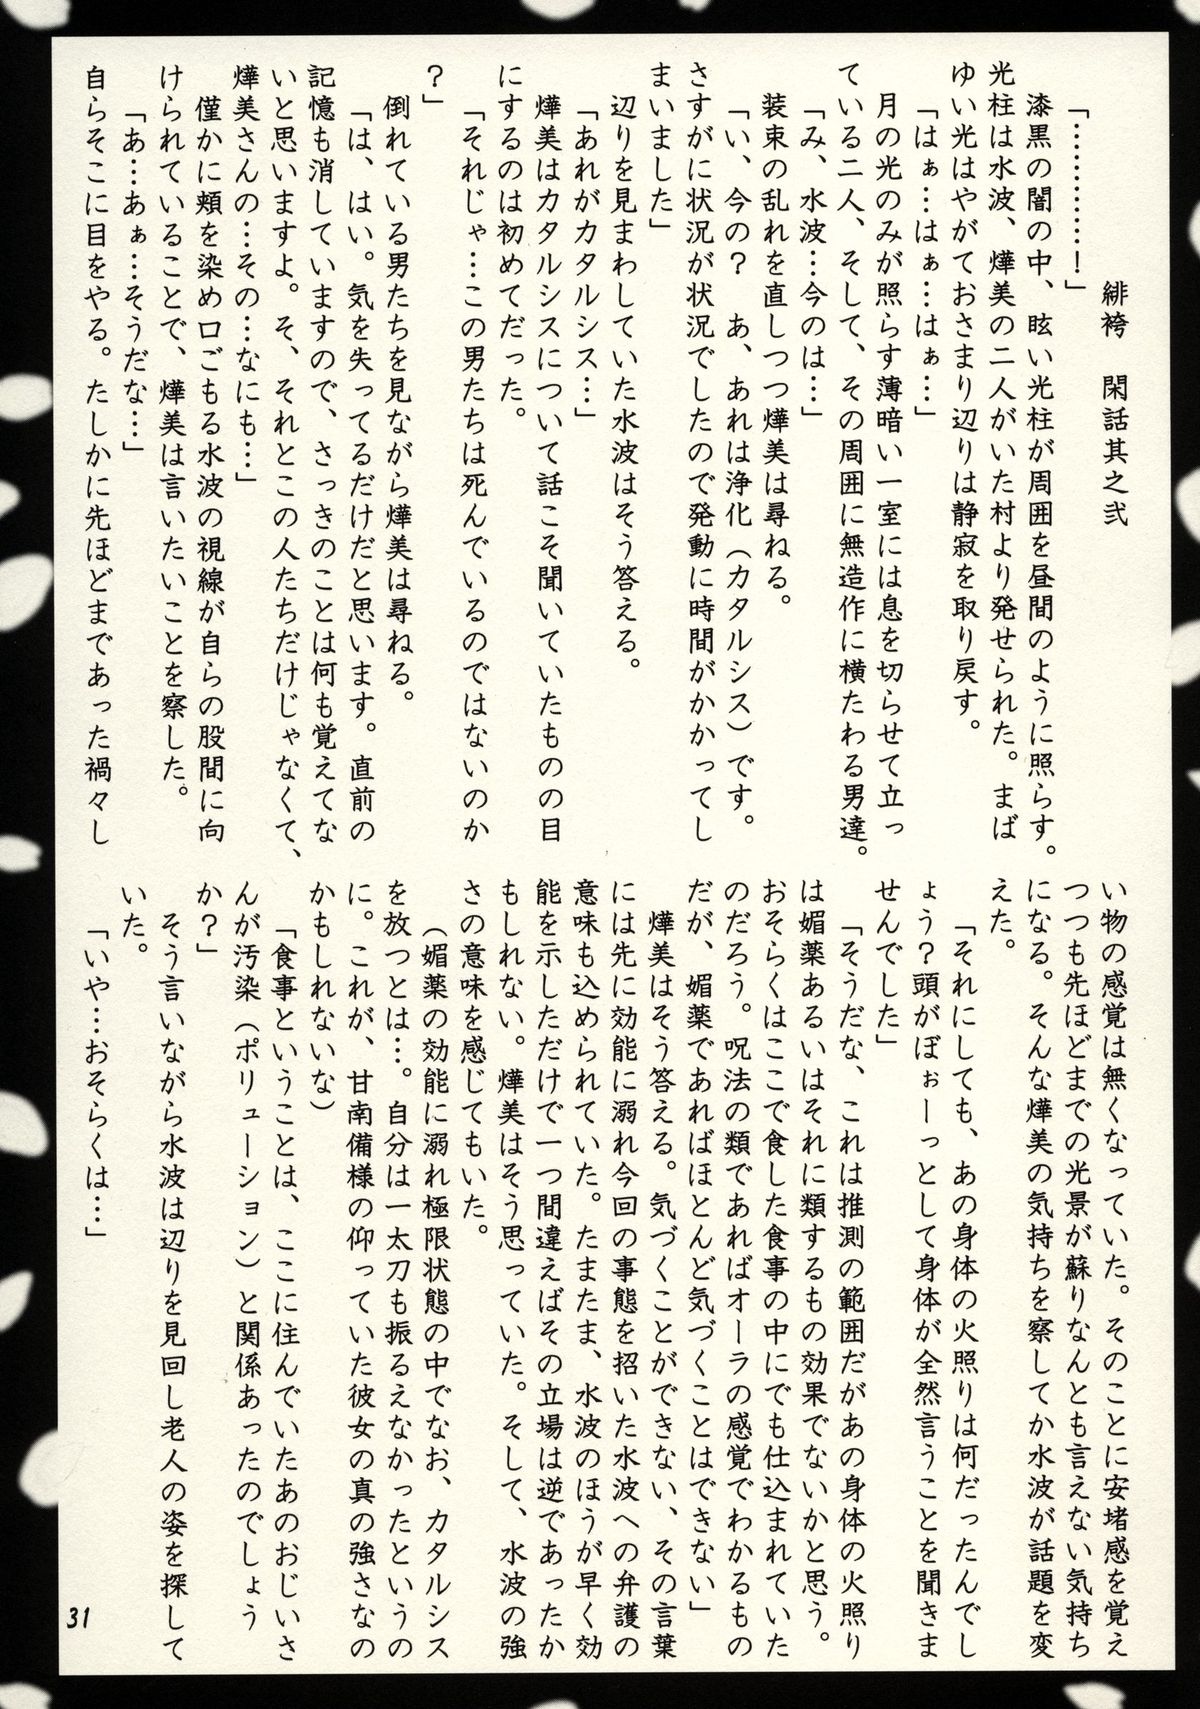 緋袴　閑話其之弐
「…………！」
漆黒の闇の中、眩い光柱が周囲を昼間のように照らす。
光柱は水波、燁美の二人がいた村より発せられた。まば
ゆい光はやがておさまり辺りは静寂を取り戻す。
「はぁ…はぁ…はぁ…」
月の光のみが照らす薄暗い一室には息を切らせて立っ
ている二人、そして、その周囲に無造作に横たわる男達。
「み、水波…今のは…」
装束の乱れを直しつつ燁美は尋ねる。
「い、今の？　あ、あれは浄化（カタルシス）です。
さすがに状況が状況でしたので発動に時間がかかってし
まいました」
辺りを見まわしていた水波はそう答える。
「あれがカタルシス…」
燁美はカタルシスについて話こそ聞いていたものの目
にするのは初めてだった。
「それじゃ…この男たちは死んでいるのではないのか
？」
倒れている男たちを見ながら燁美は尋ねる。
「は、はい。気を失ってるだけだと思います。直前の
記憶も消していますので、さっきのことは何も覚えてな
いと思いますよ。そ、それとこの人たちだけじゃなくて、
燁美さんの…その…なにも…」
僅かに頬を染め口ごもる水波の視線が自らの股間に向
けられていることで、燁美は言いたいことを察した。
「あ…あぁ…そうだな…」
自らそこに目をやる。たしかに先ほどまであった禍々し
い物の感覚は無くなっていた。そのことに安堵感を覚え
つつも先ほどまでの光景が蘇りなんとも言えない気持ち
になる。そんな燁美の気持ちを察してか水波が話題を変
えた。
「それにしても、あの身体の火照りは何だったんでし
ょう？頭がぼぉーっとして身体が全然言うことを聞きま
せんでした」
「そうだな、これは推測の範囲だがあの身体の火照り
は媚薬あるいはそれに類するもの効果でないかと思う。
おそらくはここで食した食事の中にでも仕込まれていた
のだろう。呪法の類であればオーラの感覚でわかるもの
だが、媚薬であればほとんど気づくことはできない」
燁美はそう答える。気づくことができない、その言葉
には先に効能に溺れ今回の事態を招いた水波への弁護の
意味も込められていた。たまたま、水波のほうが早く効
能を示しただけで一つ間違えばその立場は逆であったか
もしれない。燁美はそう思っていた。そして、水波の強
さの意味を感じてもいた。
（媚薬の効能に溺れ極限状態の中でなお、カタルシス
を放つとは…。自分は一太刀も振るえなかったというの
に。これが、甘南備様の仰っていた彼女の真の強さなの
かもしれないな）
「食事ということは、ここに住んでいたあのおじいさ
んが汚染（ポリューション）と関係あったのでしょう
か？」
そう言いながら水波は辺りを見回し老人の姿を探して
いた。
「いや…おそらくは…」
31